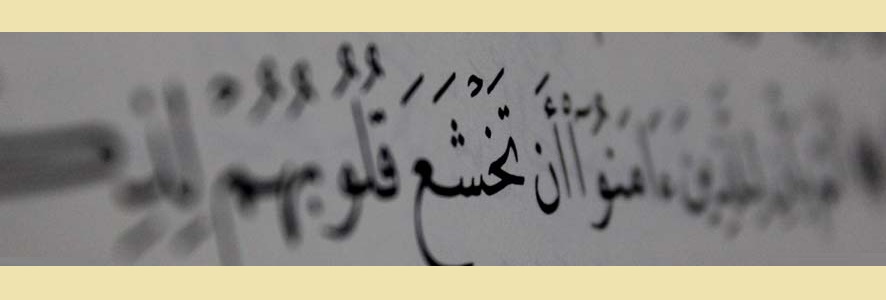 لِلَّذِينَ ءَامَنُوٓا۟ أَن تَخْشَعَ قُلُوبُهُمْ لِذِ